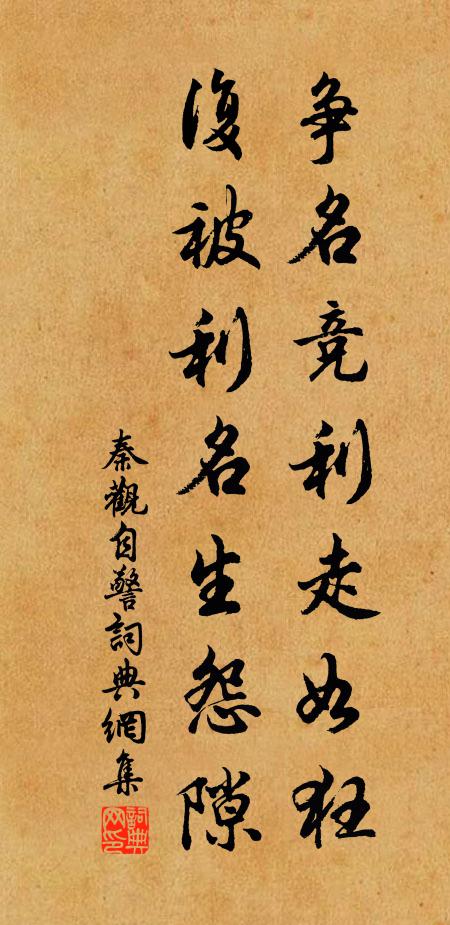 争名竞利走如狂
復被利名生怨隙
秦觀自警詞典網集
詞典网印